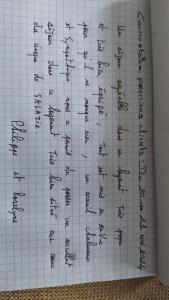 Un séjour agréable dans un logement très propre
et très bien équipé, Tout est mis en oeuvre
pour qu'il ne manque rien, un accueil chaleureux
et sympathique nous a permis de passer un excellent
séjour dans ce logement très bien situé au coeur
du cirque de SALAZIE.
Philippe et Jocelyne